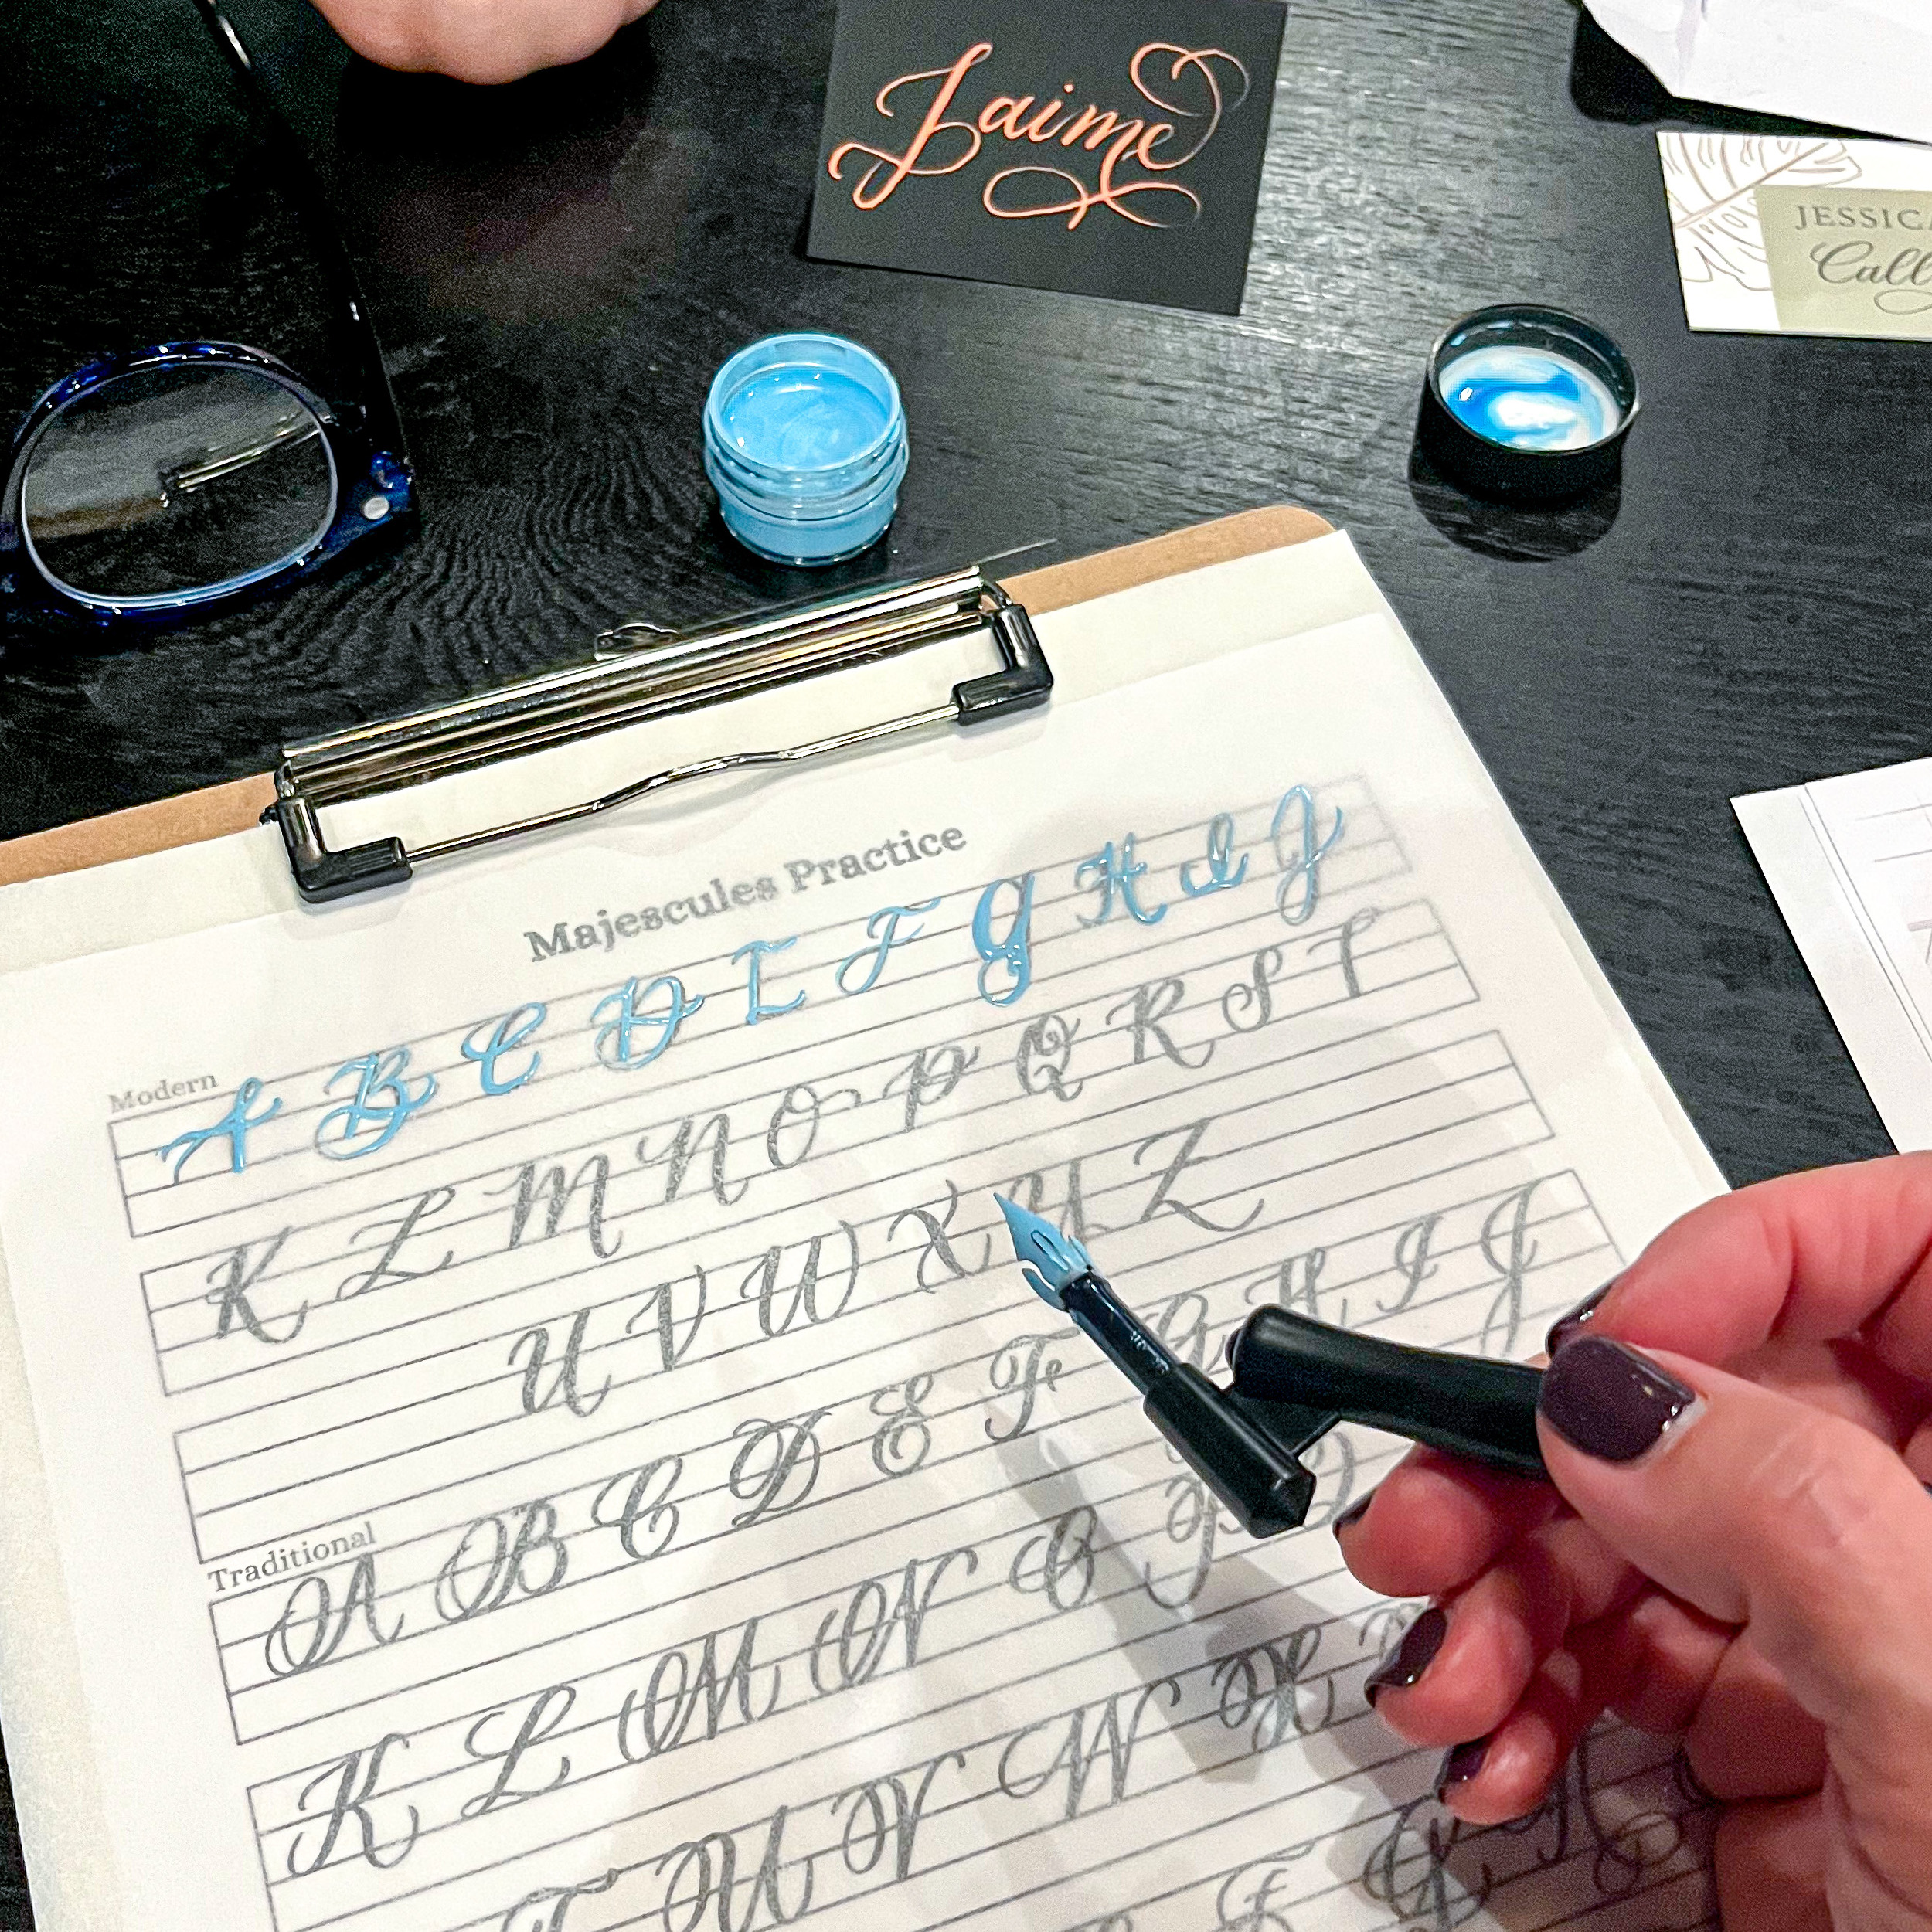 Jaime
JESSICA
Call
Majescules Practice
Modern
A B C D E F G H I J
K L M N O P Q R S T
U V W X Y Z
Traditional
A B C D E F G H I J
K L M N O P Q
T U V W X